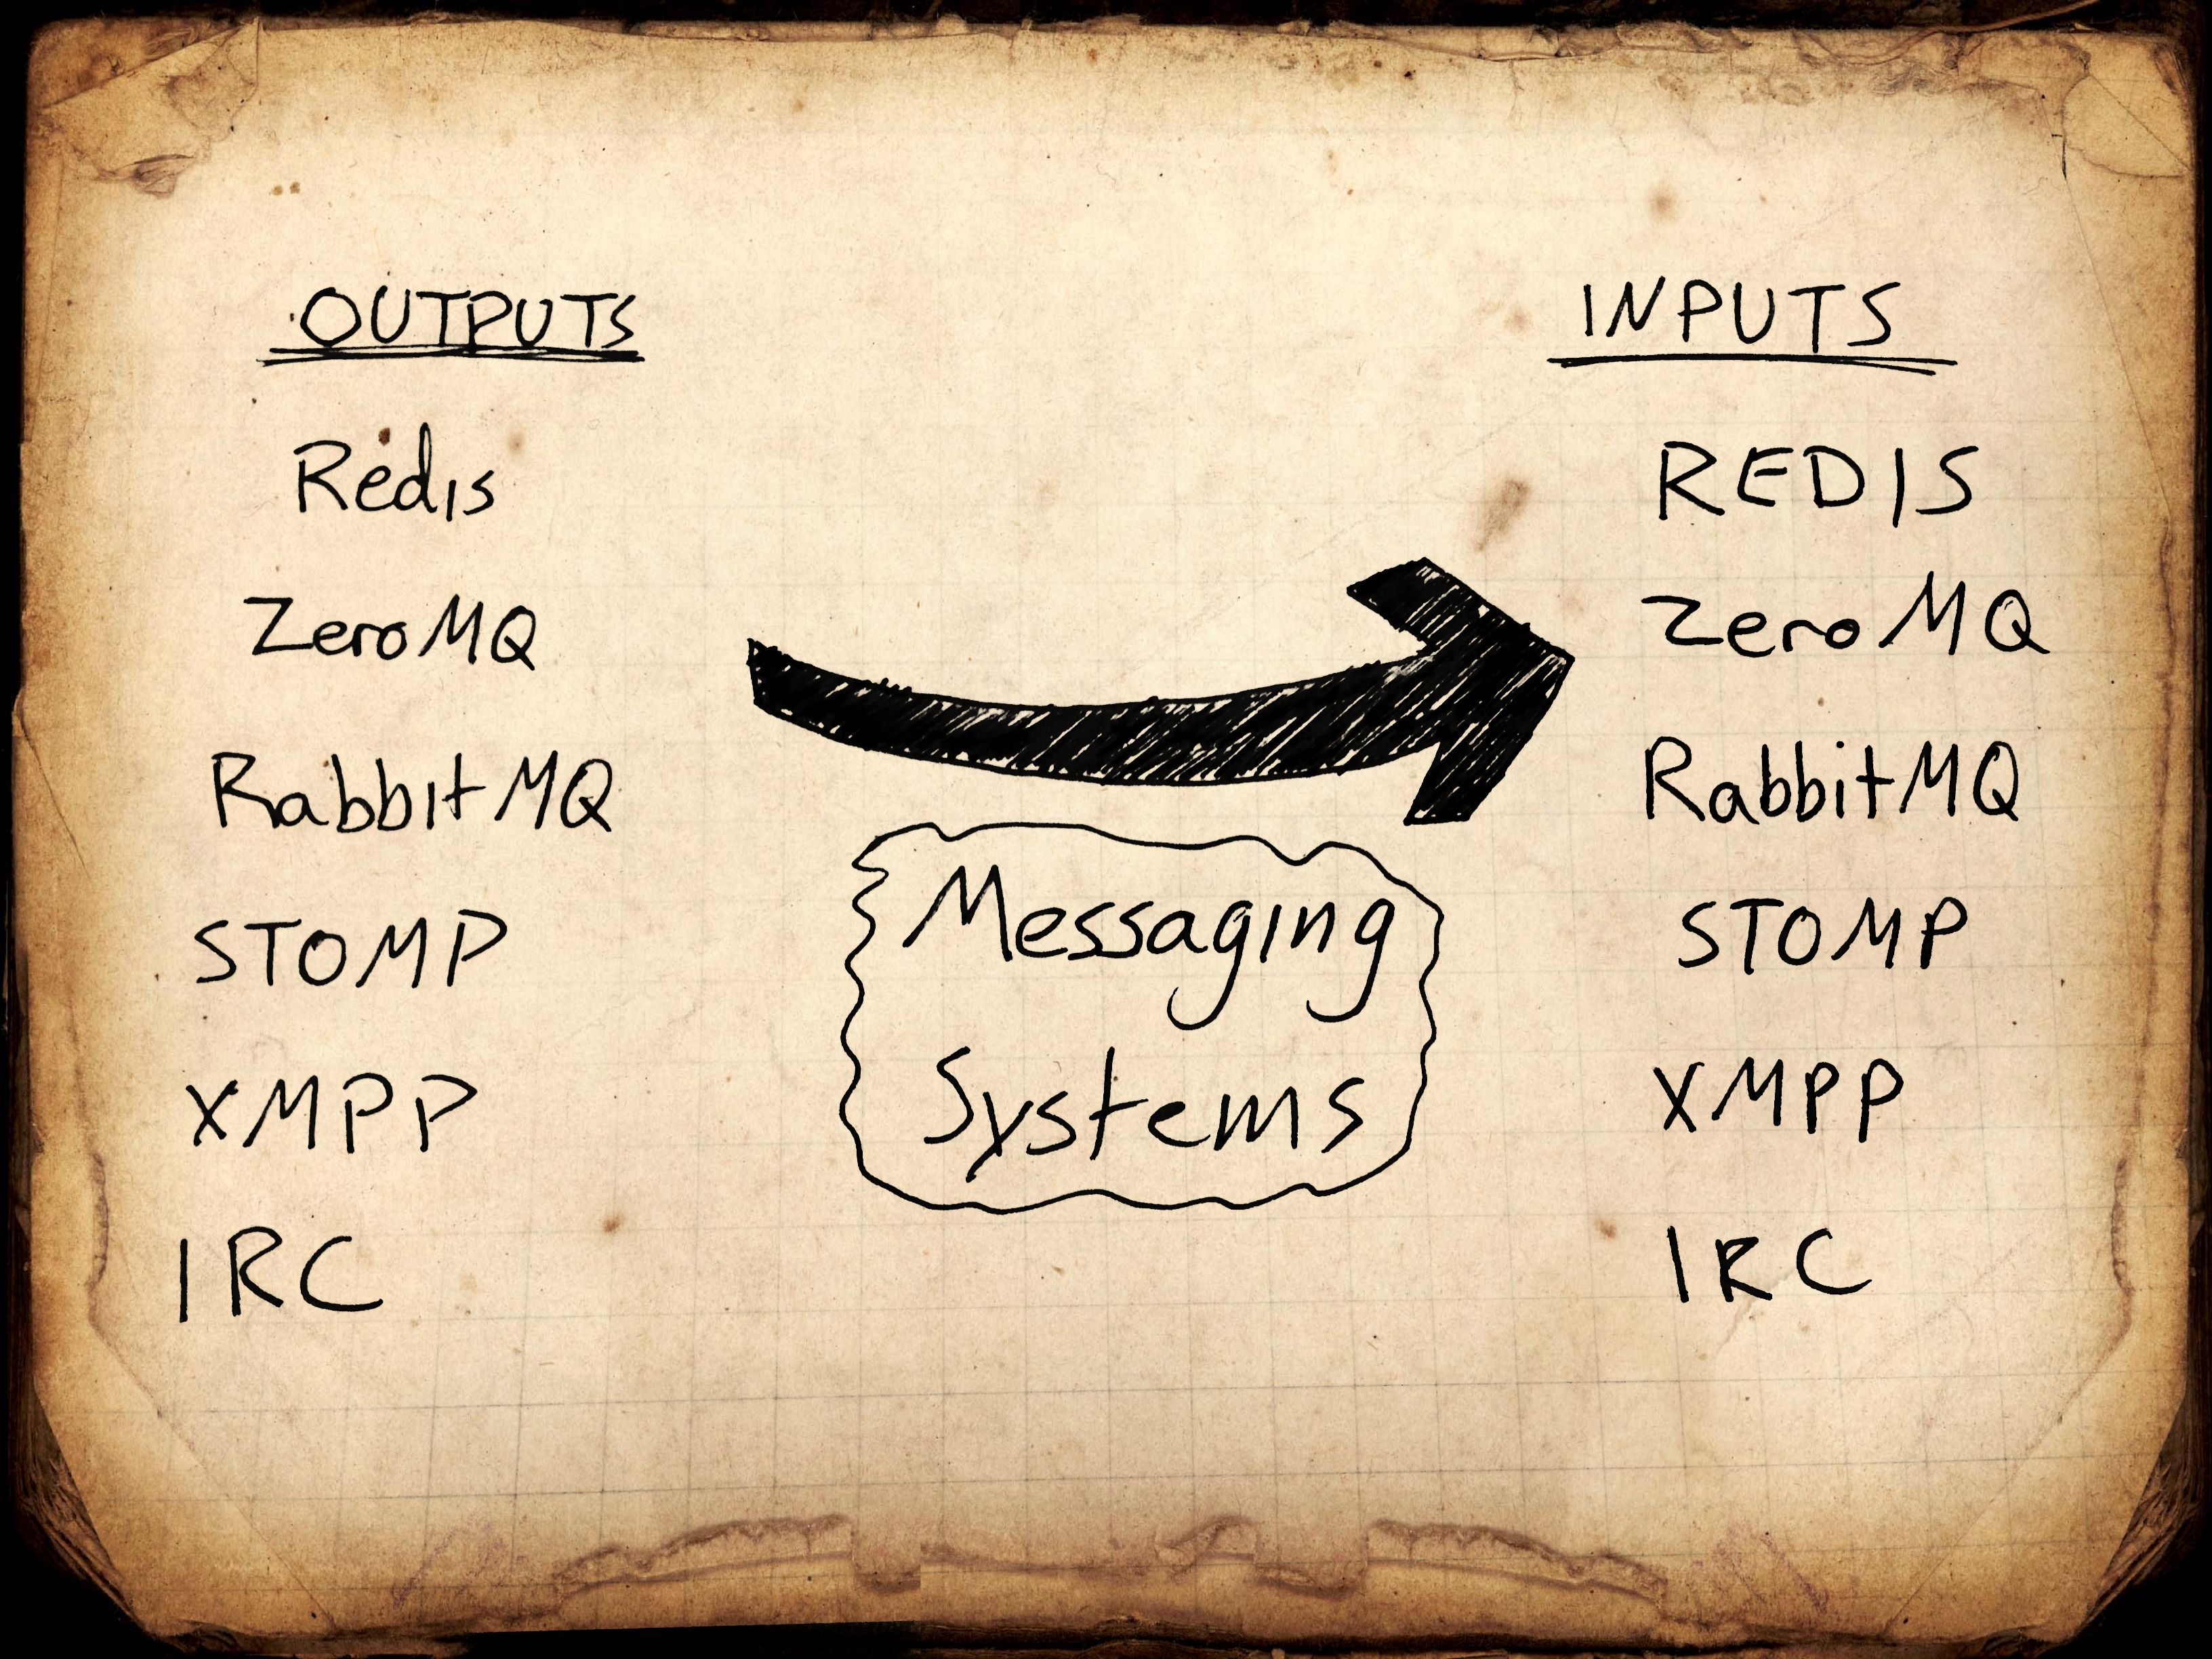 OUTPUTS
Redis
ZeroMQ
RabbitMQ
STOMP
XMPP
IRC
Messaging
Systems
INPUTS
REDIS
ZeroMQ
RabbitMQ
STOMP
XMPP
IRC